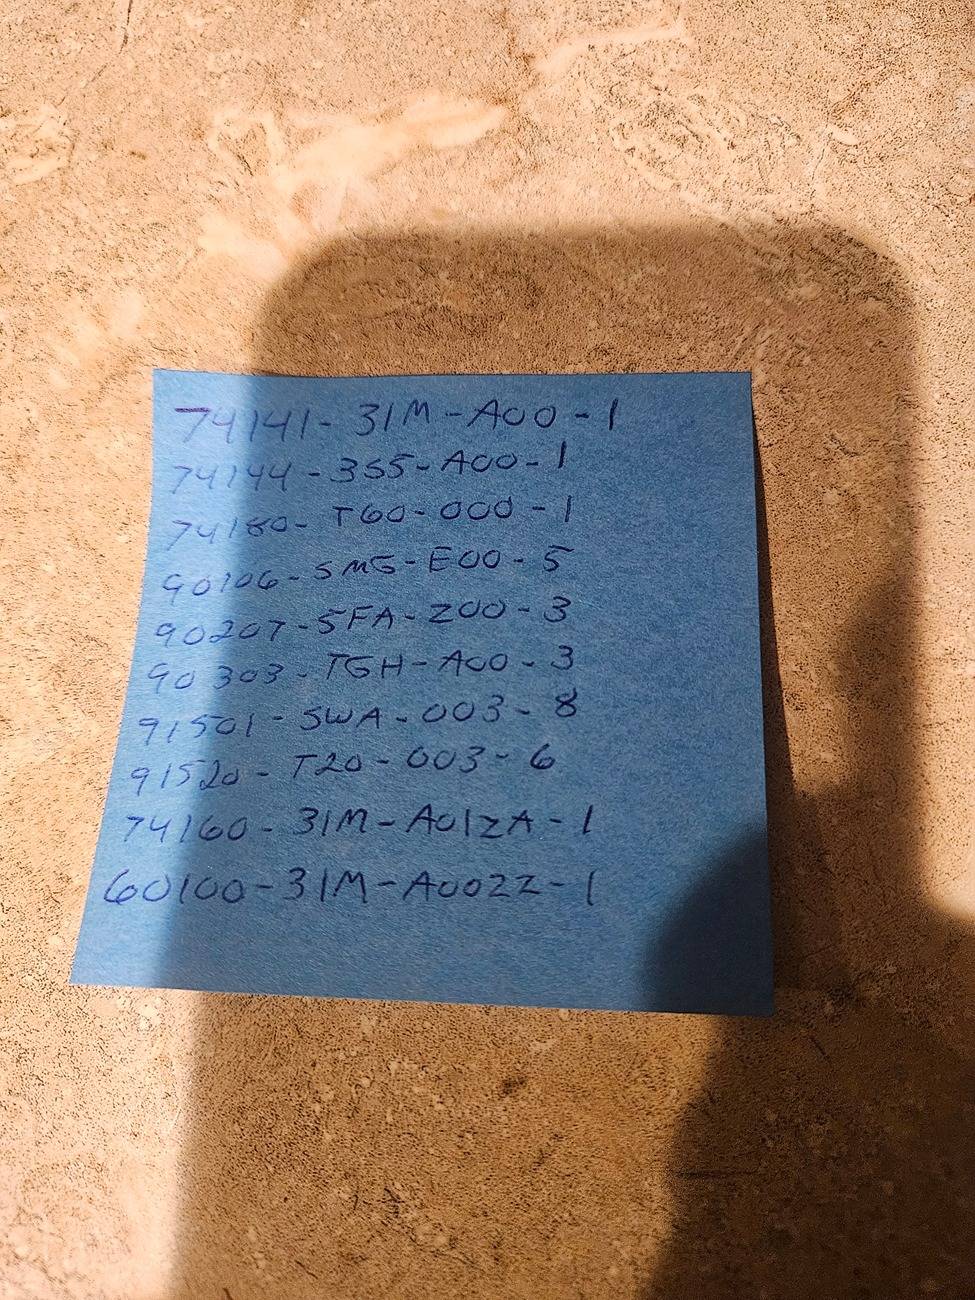 74141-31M-A00-1
74144-3S5-A00-1
74180-T60-000-1
90106-SMG-E00-5
90207-5FA-Z00-3
90303-TGH-A00-3
91501-SWA-003-8
91520-T20-003-6
74160-31M-A01ZA-1
60100-31M-A002Z-1